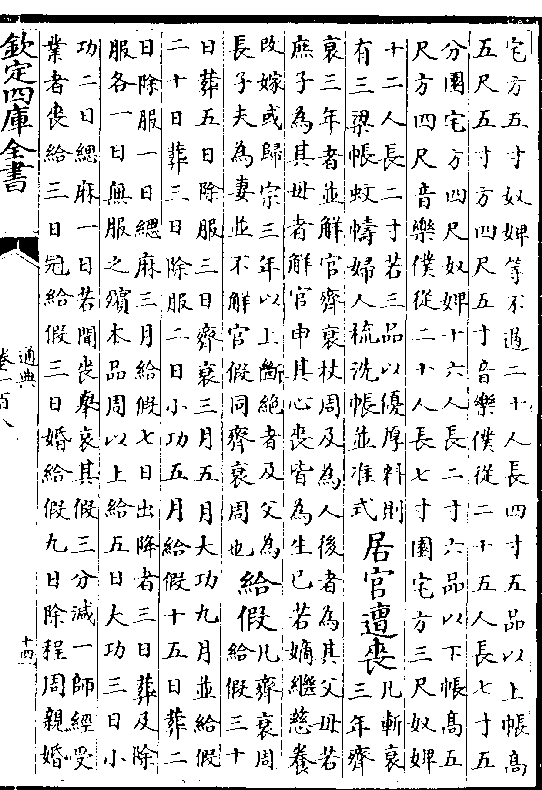 宅方五寸奴婢等不過二十人長四寸五品以上帳高
五尺五寸方四尺五寸音樂僕從二十五人長七寸五
分園宅方四尺奴婢十六人長二寸六品以下帳高五
尺方四尺音樂僕從二十人長七寸園宅方三尺奴婢
十二人長二寸若三品以優厚料則
有三梁帳蚊幬婦人梳洗帳並准式
居官遭喪
凡斬衰
三年齊
衰三年者並解官齊衰杖周及為人後者為其父母若
庶子為其母者解官申其心喪皆為生己若嫡繼慈養
改嫁或歸宗三年以上斷絶者及父為
長子夫為妻並不解官假同齊衰周也
給假
凡齊衰周
給假三十
日葬五日除服三日齊衰三月五月大功九月並給假
二十日葬三日除服二日小功五月給假十五日葬二
日除服一日緦麻三月給假七日出降者三日葬及除
服各一日無服之殤本品周以上給五日大功三日小
功二日緦麻一日若聞喪舉哀其假三分減一師經受
業者喪給三日冠給假三日婚給假九日除程周親婚
欽定四庫全書
通典
卷一百八
十四